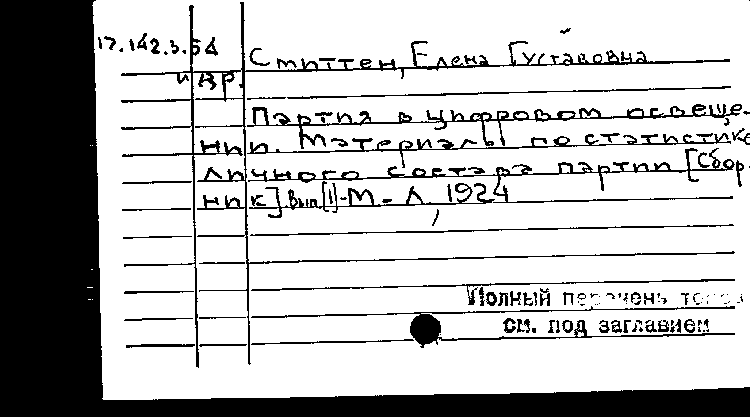 17.142.3.54
и др.
Смиттен, Елена Густавовна
Партия в цифровом освеще-
нии. Материалы по статистике
личного состава партии [Сбор-
ник]. Вып. [1]-М.-Л, 1924
Полный перечень томов
см. под заглавием